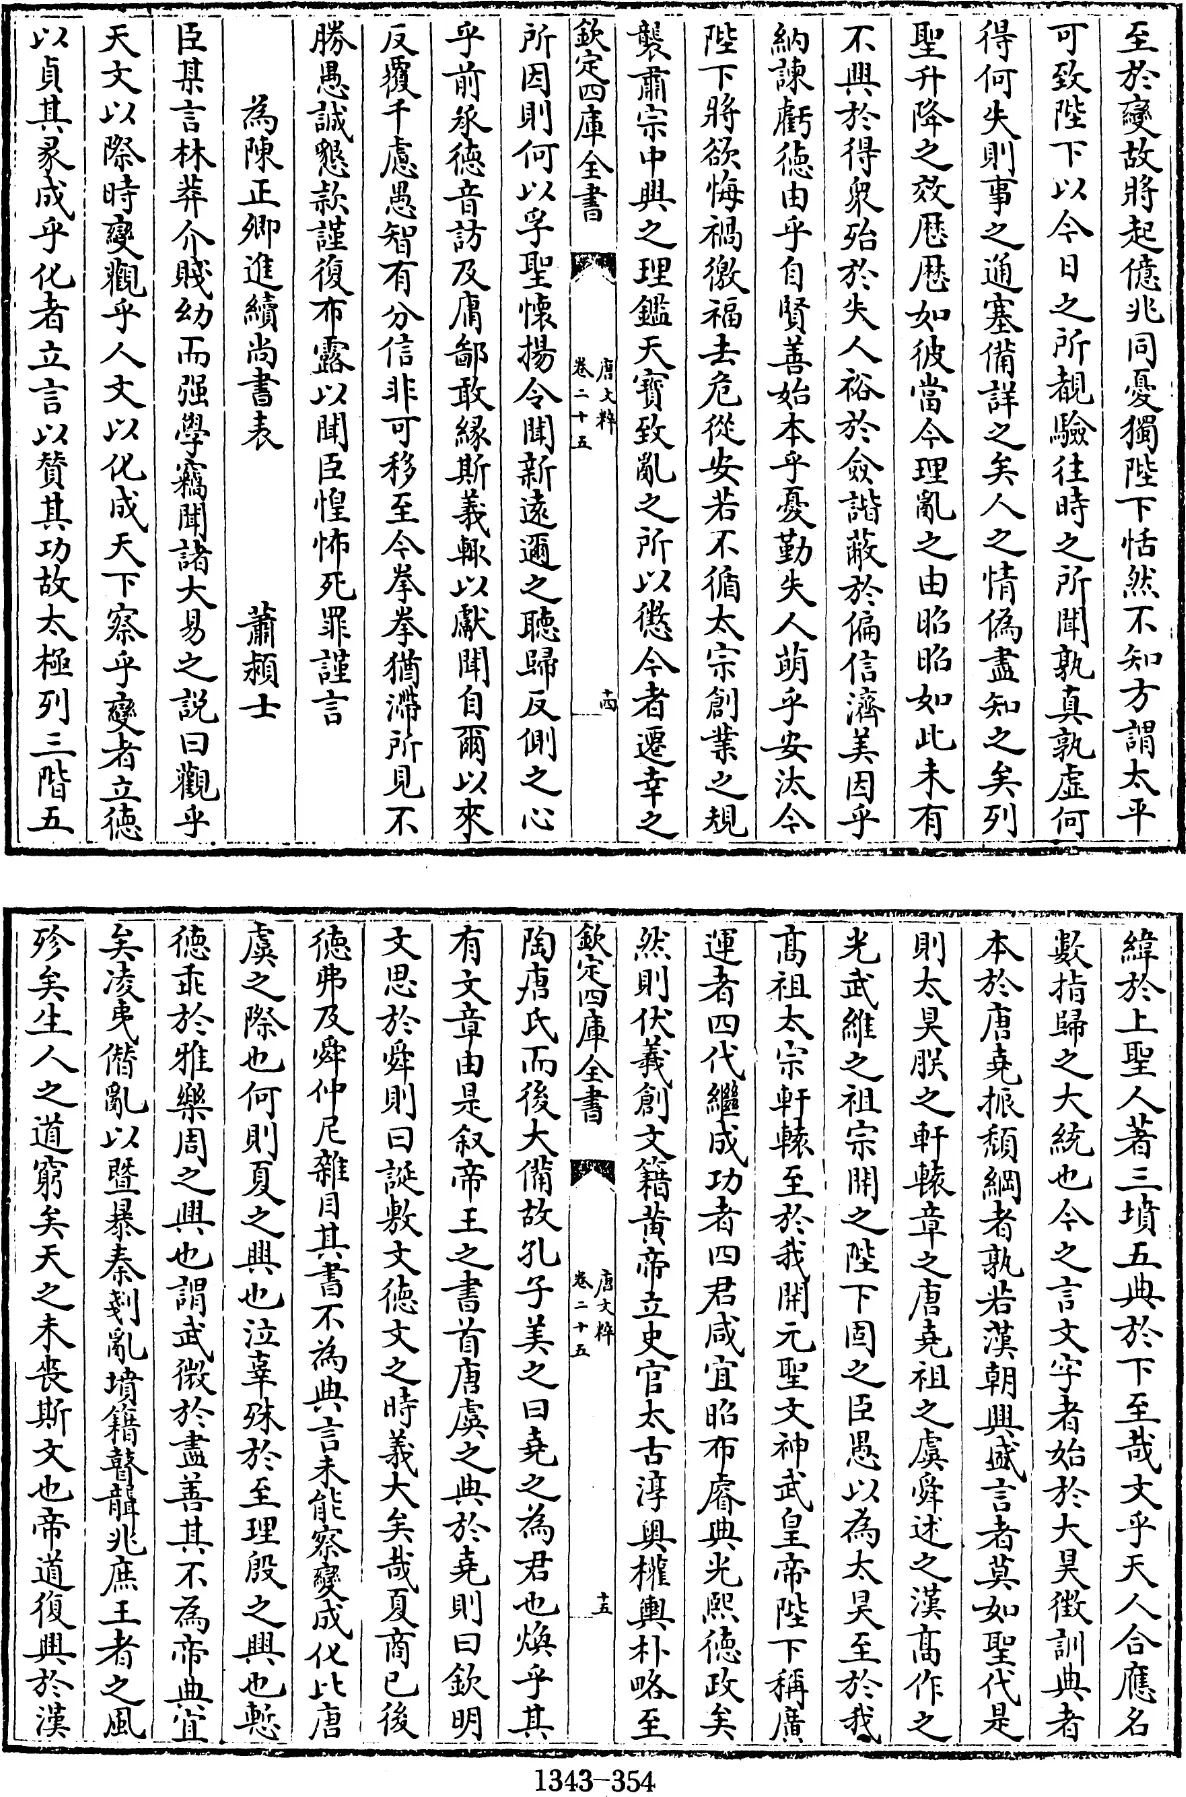 至於變故將起億兆同憂獨陛下恬然不知方謂太平
可致陛下以今日之所覩驗往時之所聞孰真孰虛何
得何失則事之通塞備詳之矣人之情偽盡知之矣列
聖升降之效厯厯如彼當今理亂之由昭昭如此未有
不興於得衆殆於失人裕於僉諧蔽於偏信濟美因乎
納諫虧德由乎自賢善始本乎憂勤失人萌乎安汰今
陛下將欲悔禍徼福去危從安若不循太宗創業之規
襲肅宗中興之理鑑天寶致亂之所以懲今者遷幸之
欽定四庫全書
唐文粹
卷二十五
十四
所因則何以孚聖懷揚令聞新遠邇之聽歸反側之心
乎前承德音訪及庸鄙敢緣斯義輙以獻聞自爾以來
反覆千慮愚智有分信非可移至今拳拳猶滯所見不
勝愚誠懇款謹復布露以聞臣惶怖死罪謹言
為陳正卿進續尚書表
蕭頴士
臣某言林莽介賤幼而强學竊聞諸大易之説曰觀乎
天文以際時變觀乎人文以化成天下察乎變者立德
以貞其象成乎化者立言以賛其功故太極列三階五
緯於上聖人著三墳五典於下至哉文乎天人合應名
數指歸之大統也今之言文字者始於大昊徵訓典者
本於唐堯振頽綱者孰若漢朝興盛言者莫如聖代是
則太昊朕之軒轅章之唐堯祖之虞舜述之漢髙作之
光武維之祖宗開之陛下固之臣愚以為太昊至於我
髙祖太宗軒轅至於我開元聖文神武皇帝陛下稱廣
運者四代繼成功者四君咸宜昭布睿典光熙德政矣
然則伏羲創文籍黄帝立史官太古淳奥權輿朴略至
欽定四庫全書
唐文粹
卷二十五
十五
陶唐氏而後大備故孔子美之曰堯之為君也煥乎其
有文章由是叙帝王之書首唐虞之典於堯則曰欽明
文思於舜則曰誕敷文德文之時義大矣哉夏商已後
德弗及舜仲尼雜目其書不為典言未能察變成化比唐
虞之際也何則夏之興也泣辜殊於至理殷之興也慙
德乖於雅樂周之興也謂武微於盡善其不為帝典宜
矣凌夷僭亂以暨暴秦剗亂墳籍瞽聾兆庶王者之風
殄矣生人之道窮矣天之未喪斯文也帝道復興於漢
1343-354